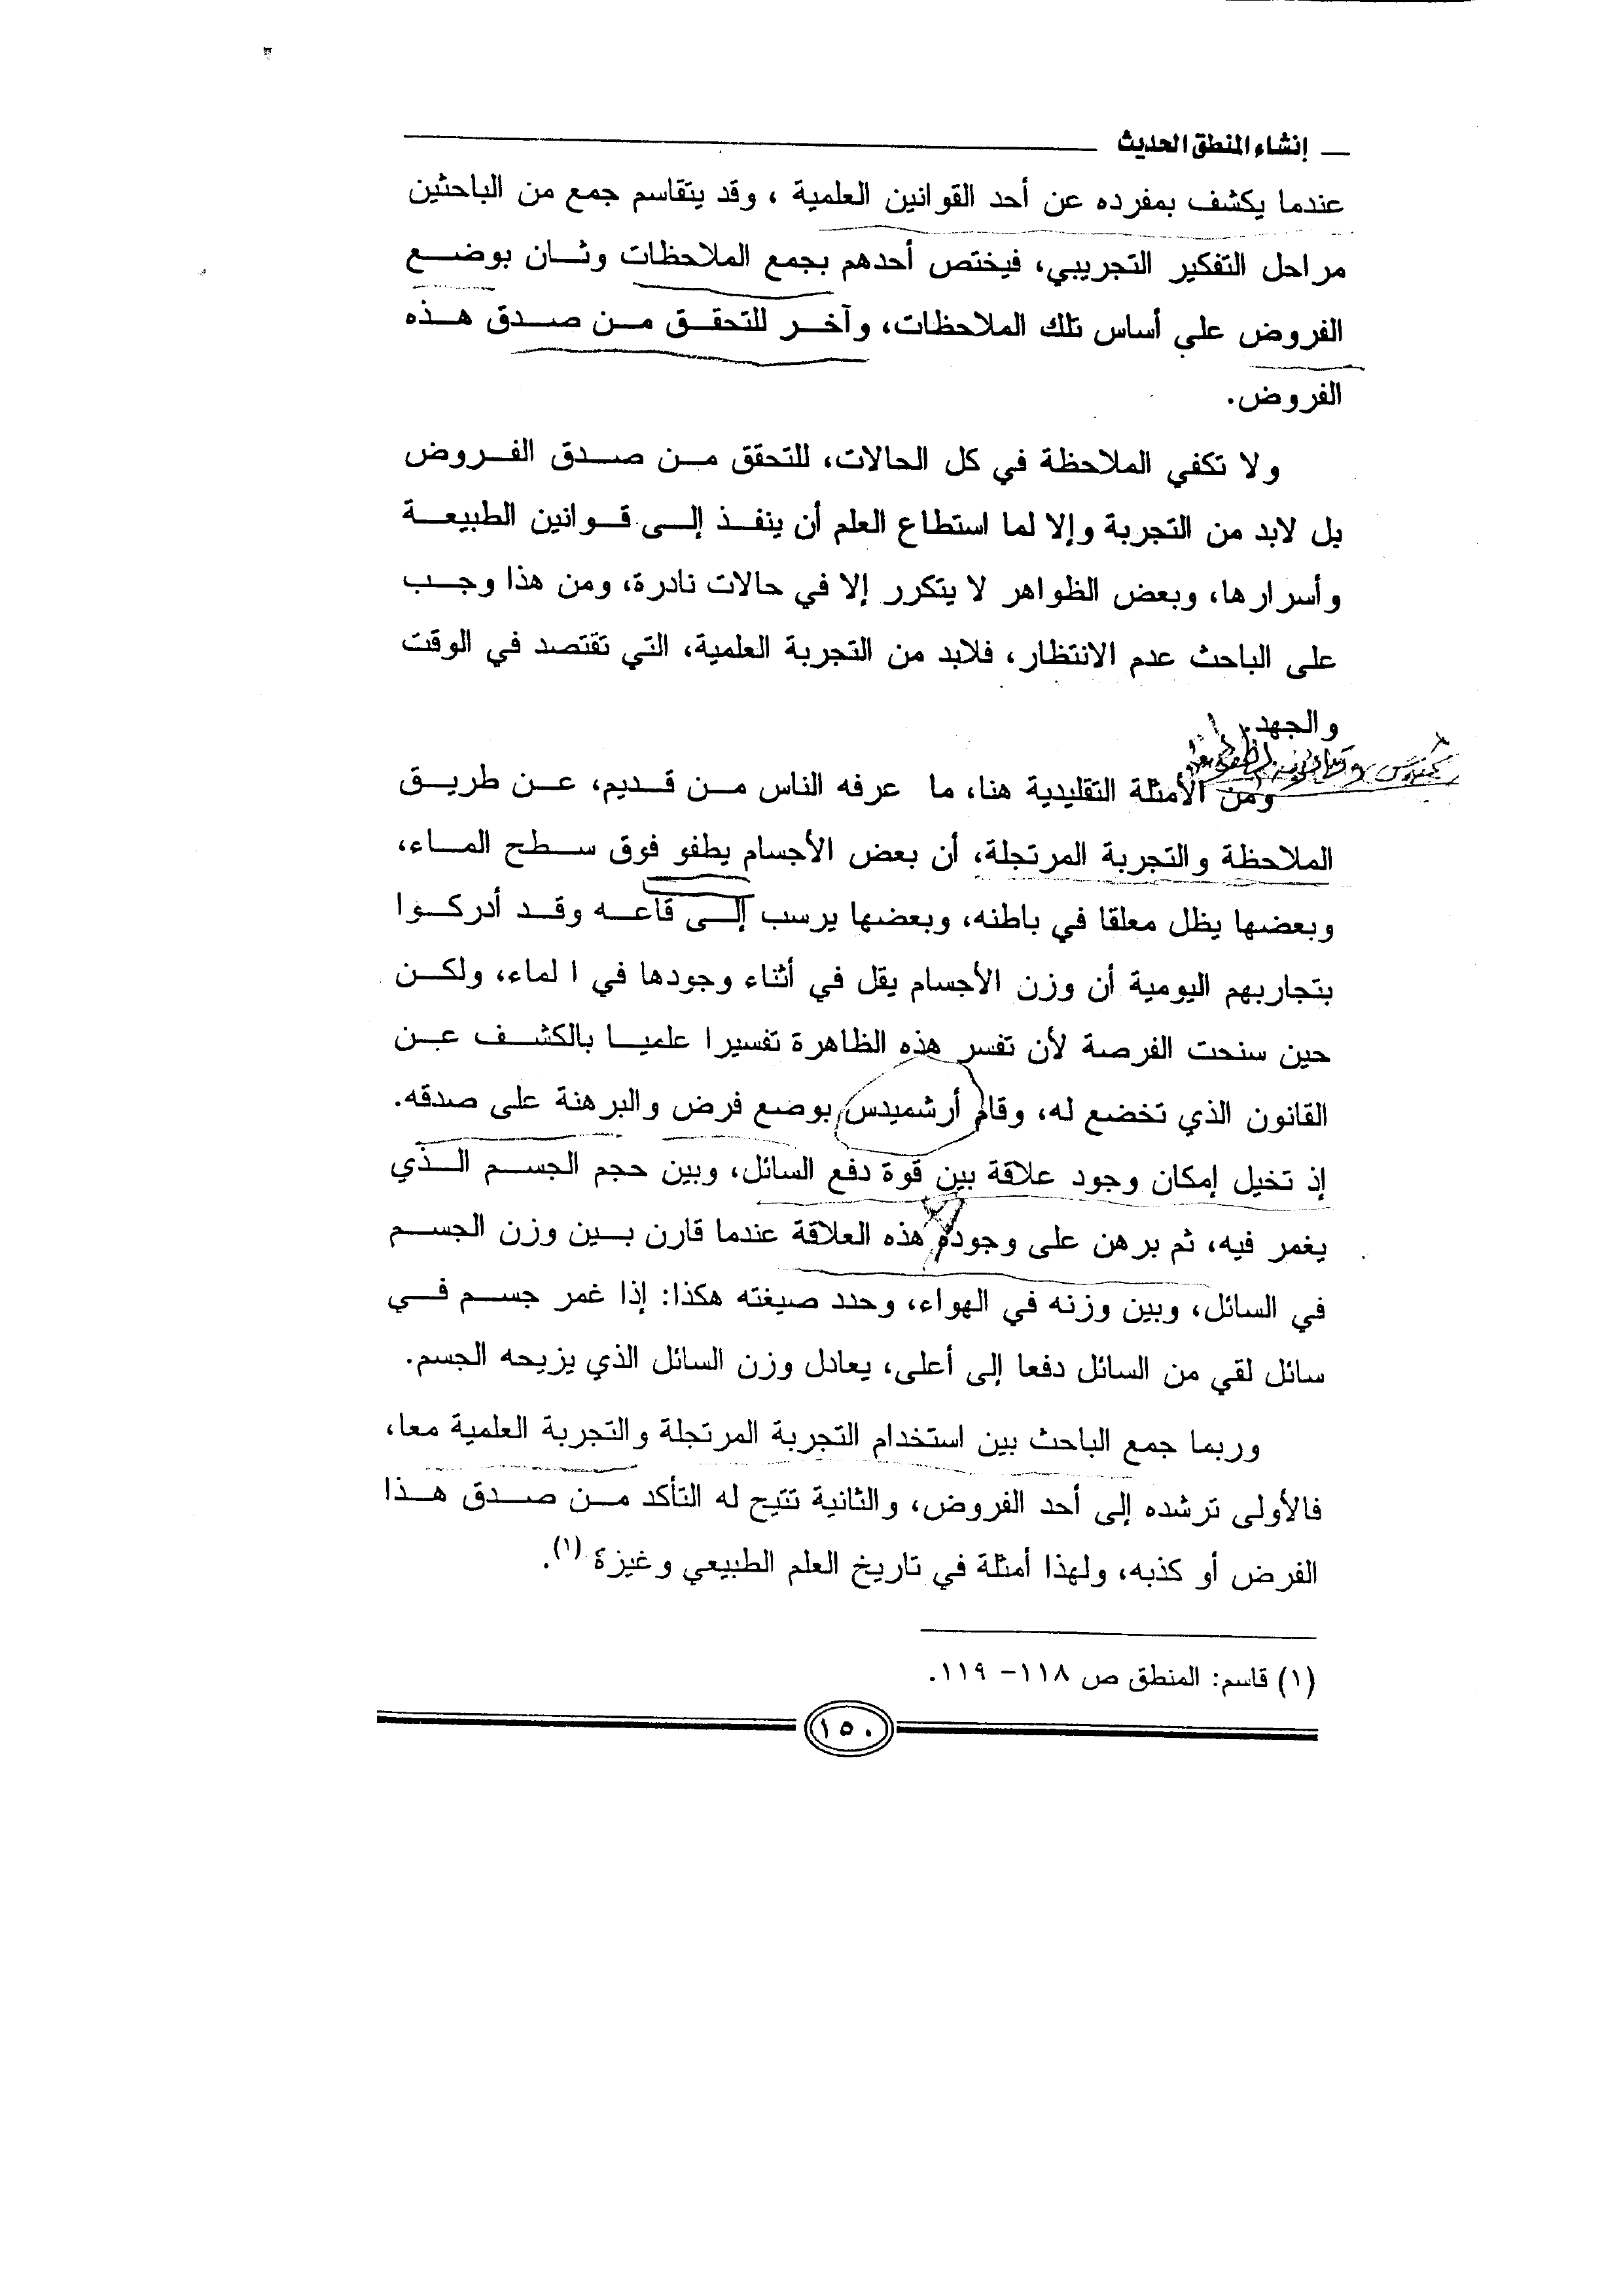 إنشاء المنطق الحديث
عندما يكشف بمفرده عن أحد القوانين العلمية ، وقد يتقاسم جمع من الباحثين
مراحل التفكير التجريبي، فيختص أحدهم بجمع الملاحظات وثان بوضع
الفروض على أساس تلك الملاحظات، وآخر للتحقق من صدق هذه
الفروض.
ولا تكفي الملاحظة في كل الحالات، للتحقق من صدق الفروض
بل لابد من التجربة وإلا لما استطاع العلم أن ينفذ إلى قوانين الطبيعة
وأسرارها، وبعض الظواهر لا يتكرر إلا في حالات نادرة، ومن هذا وجب
على الباحث عدم الانتظار، فلابد من التجربة العلمية، التي تقتصد في الوقت
والجهد.
ومن الأمثلة التقليدية هنا، ما عرفه الناس من قديم، عن طريق
الملاحظة والتجربة المرتجلة، أن بعض الأجسام يطفو فوق سطح الماء،
وبعضها يظل معلقا في باطنه، وبعضها يرسب إلى قاعه وقد أدركوا
بتجاربهم اليومية أن وزن الأجسام يقل في أثناء وجودها في ا لماء، ولكن
حين سنحت الفرصة لأن تفسر هذه الظاهرة تفسيرا علميا بالكشف عن
القانون الذي تخضع له، وقام أرشميدس بوضع فرض والبرهنة على صدقه.
إذ تخيل إمكان وجود علاقة بين قوة دفع السائل، وبين حجم الجسم الذي
يغمر فيه، ثم برهن على وجود هذه العلاقة عندما قارن بين وزن الجسم
في السائل، وبين وزنه في الهواء، وحدد صيغته هكذا: إذا غمر جسم في
سائل لقي من السائل دفعا إلى أعلى، يعادل وزن السائل الذي يزيحه الجسم.
وربما جمع الباحث بين استخدام التجربة المرتجلة والتجربة العلمية معا،
فالأولى ترشده إلى أحد الفروض، والثانية تتيح له التأكد من صدق هذا
الفرض أو كذبه، ولهذا أمثلة في تاريخ العلم الطبيعي وغيزة (١).
(١) قاسم: المنطق ص ١١٨- ١١٩.
١٥٠